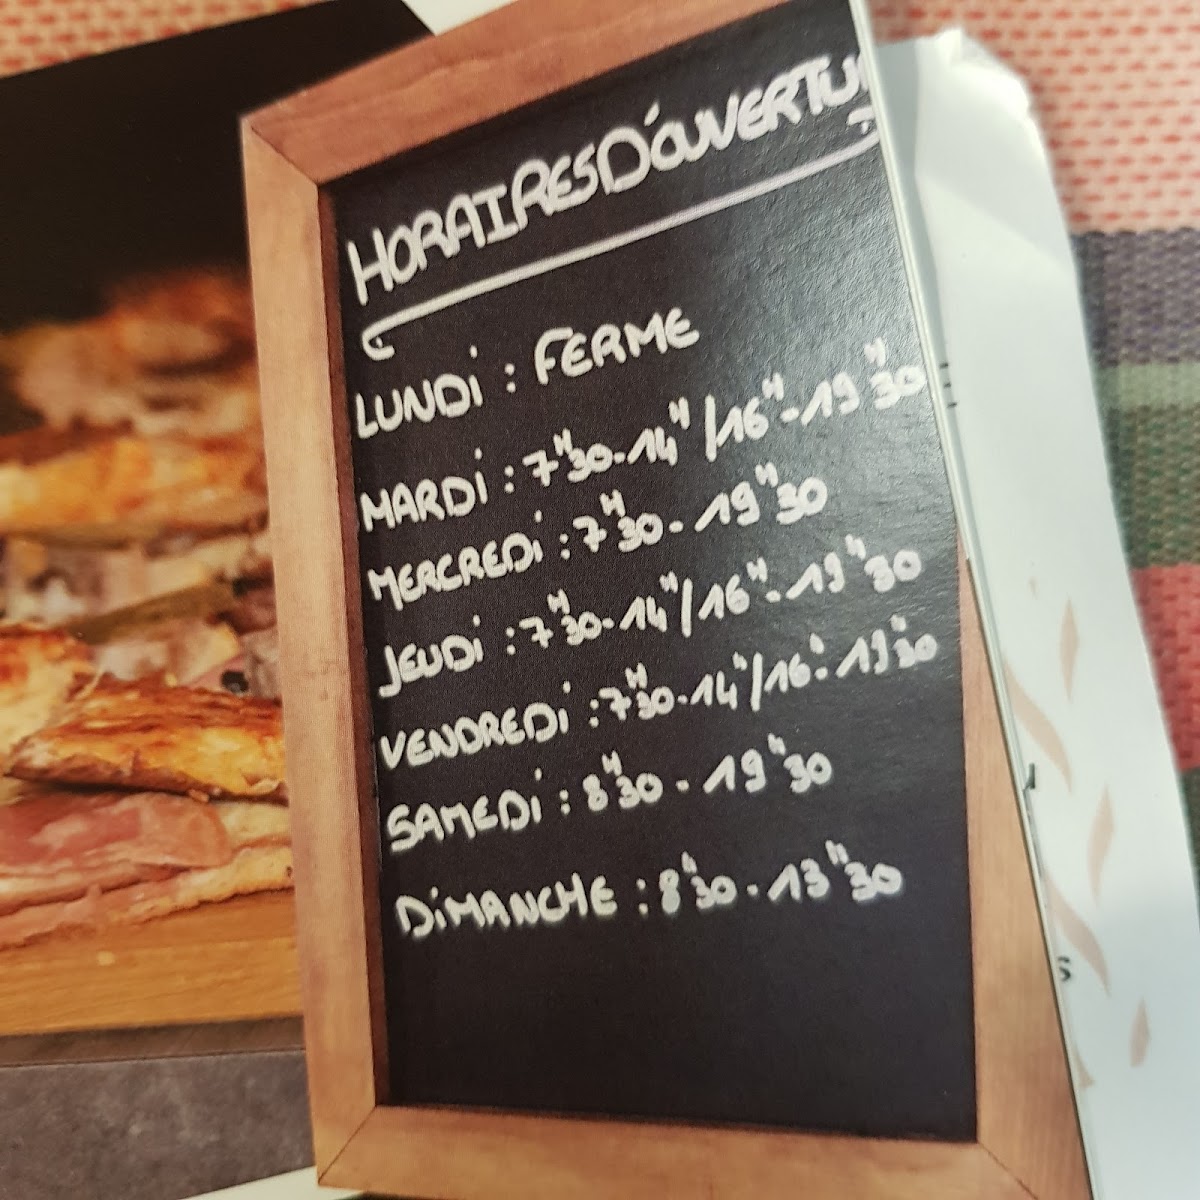 HORAIRES D'OUVERTU
LUNDI : FERME
MARDI : 7H30-14H/16H-19H30
MERCREDI : 7H30-19H30
JEUDI : 7H30-14H/16H-19H30
VENDREDI : 7H30-14H/16H-19H30
SAMEDI : 8H30-19H30
DIMANCHE : 8H30-13H30